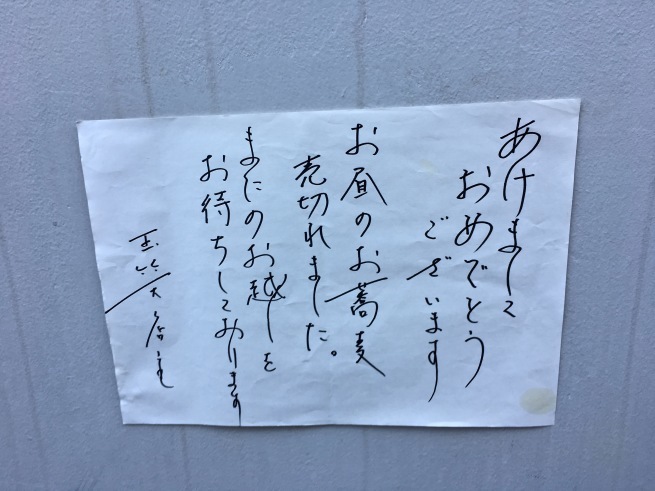 あけまして
おめでとう
ございます
お昼のお蕎麦
売切れました。
またのお越しを
お待ちしております
店主